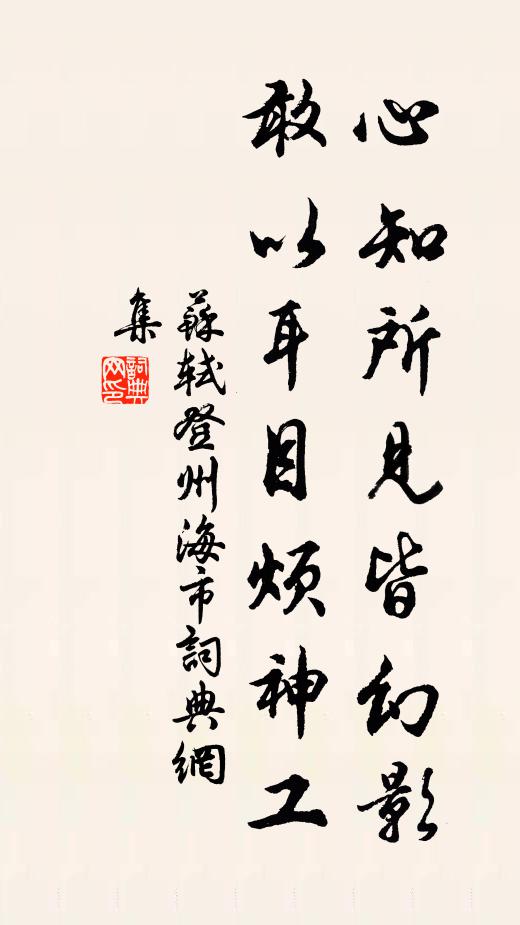 心知所見皆幻影
敢以耳目煩神工
蘇軾登州海市詞典網
集
詞典網印